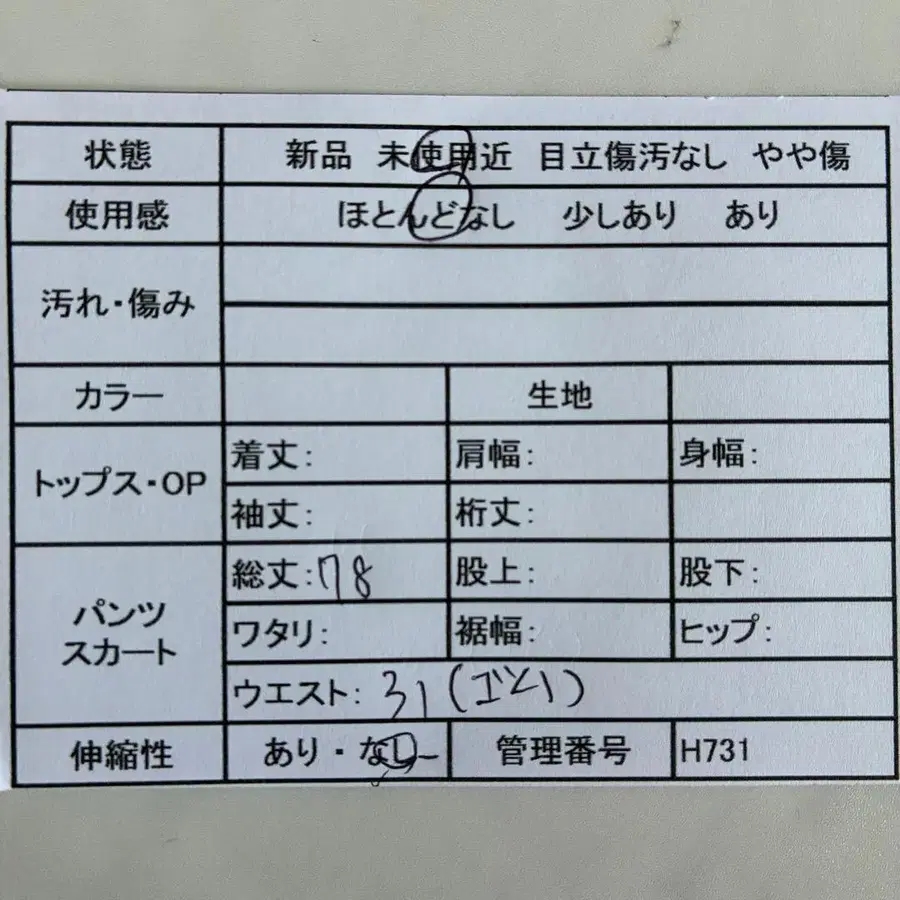 状態 新品 未使用近 目立傷汚なし やや傷
使用感 ほとんどなし 少しあり あり
汚れ・傷み
カラー 生地
トップス・OP
着丈: 肩幅: 身幅:
袖丈: 裄丈:
パンツ
スカート
総丈:78 股上: 股下:
ワタリ: 裾幅: ヒップ:
ウエスト: 31(ゴム)
伸縮性 あり・なし 管理番号 H731